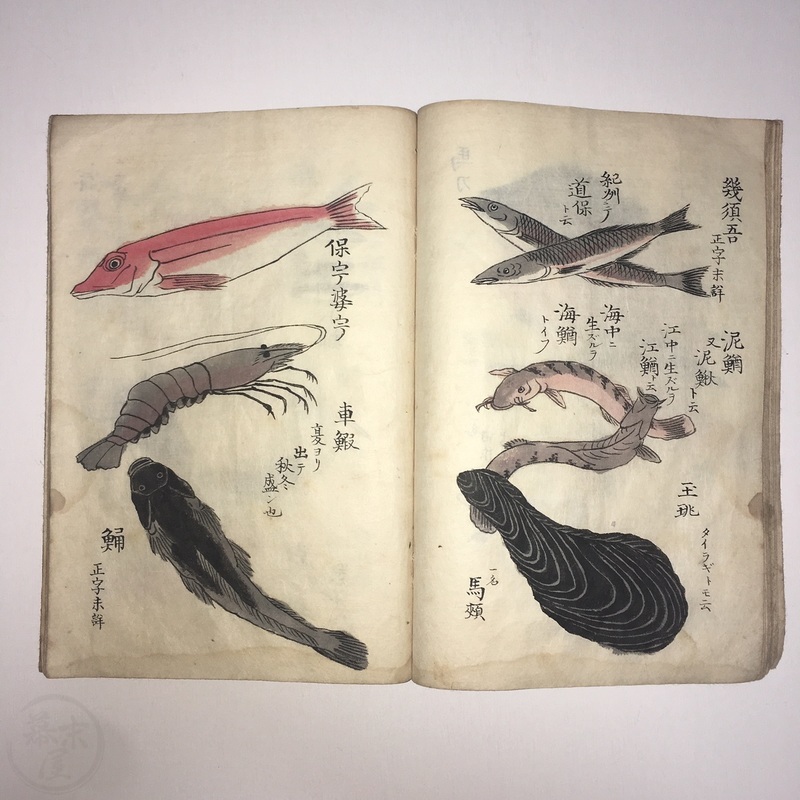 幾須吾
正字未詳
紀州ニテ
道保
ト云
泥鰌
又泥鰍
ト云
江中ニ生ズルヲ
江鰌ト云
海中ニ
生ズルヲ
海鰌
トイフ
玉珧
タイラギトモ云
一名
馬頰
保宇婆宇
車鰕
夏ヨリ
出テ
秋冬
盛ン也
正字未詳